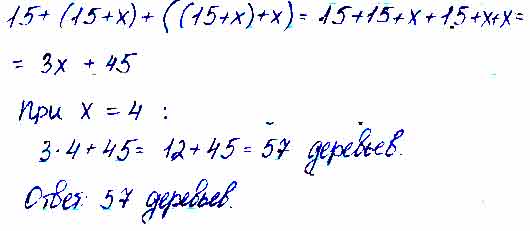 15 + (15+x) + ((15+x)+x) = 15+15+x+15+x+x=
= 3x + 45
При x = 4 :
3·4+45 = 12+45 = 57 деревьев.
Ответ: 57 деревьев.